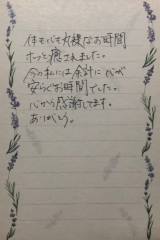 体も心も大緩なお時間
ホッと癒されました。
今の私には余計に心が
安らぐお時間でした。
心から感謝してます。
ありがとう。